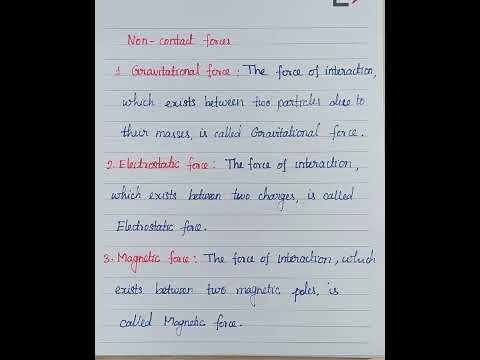 Non-contact forces
1. Gravitational force : The force of interaction,
which exists between two particles due to
their masses, is called Gravitational force.
2. Electrostatic force : The force of interaction,
which exists between two charges, is called
Electrostatic force.
3. Magnetic force : The force of interaction, which
exists between two magnetic poles, is
called Magnetic force.